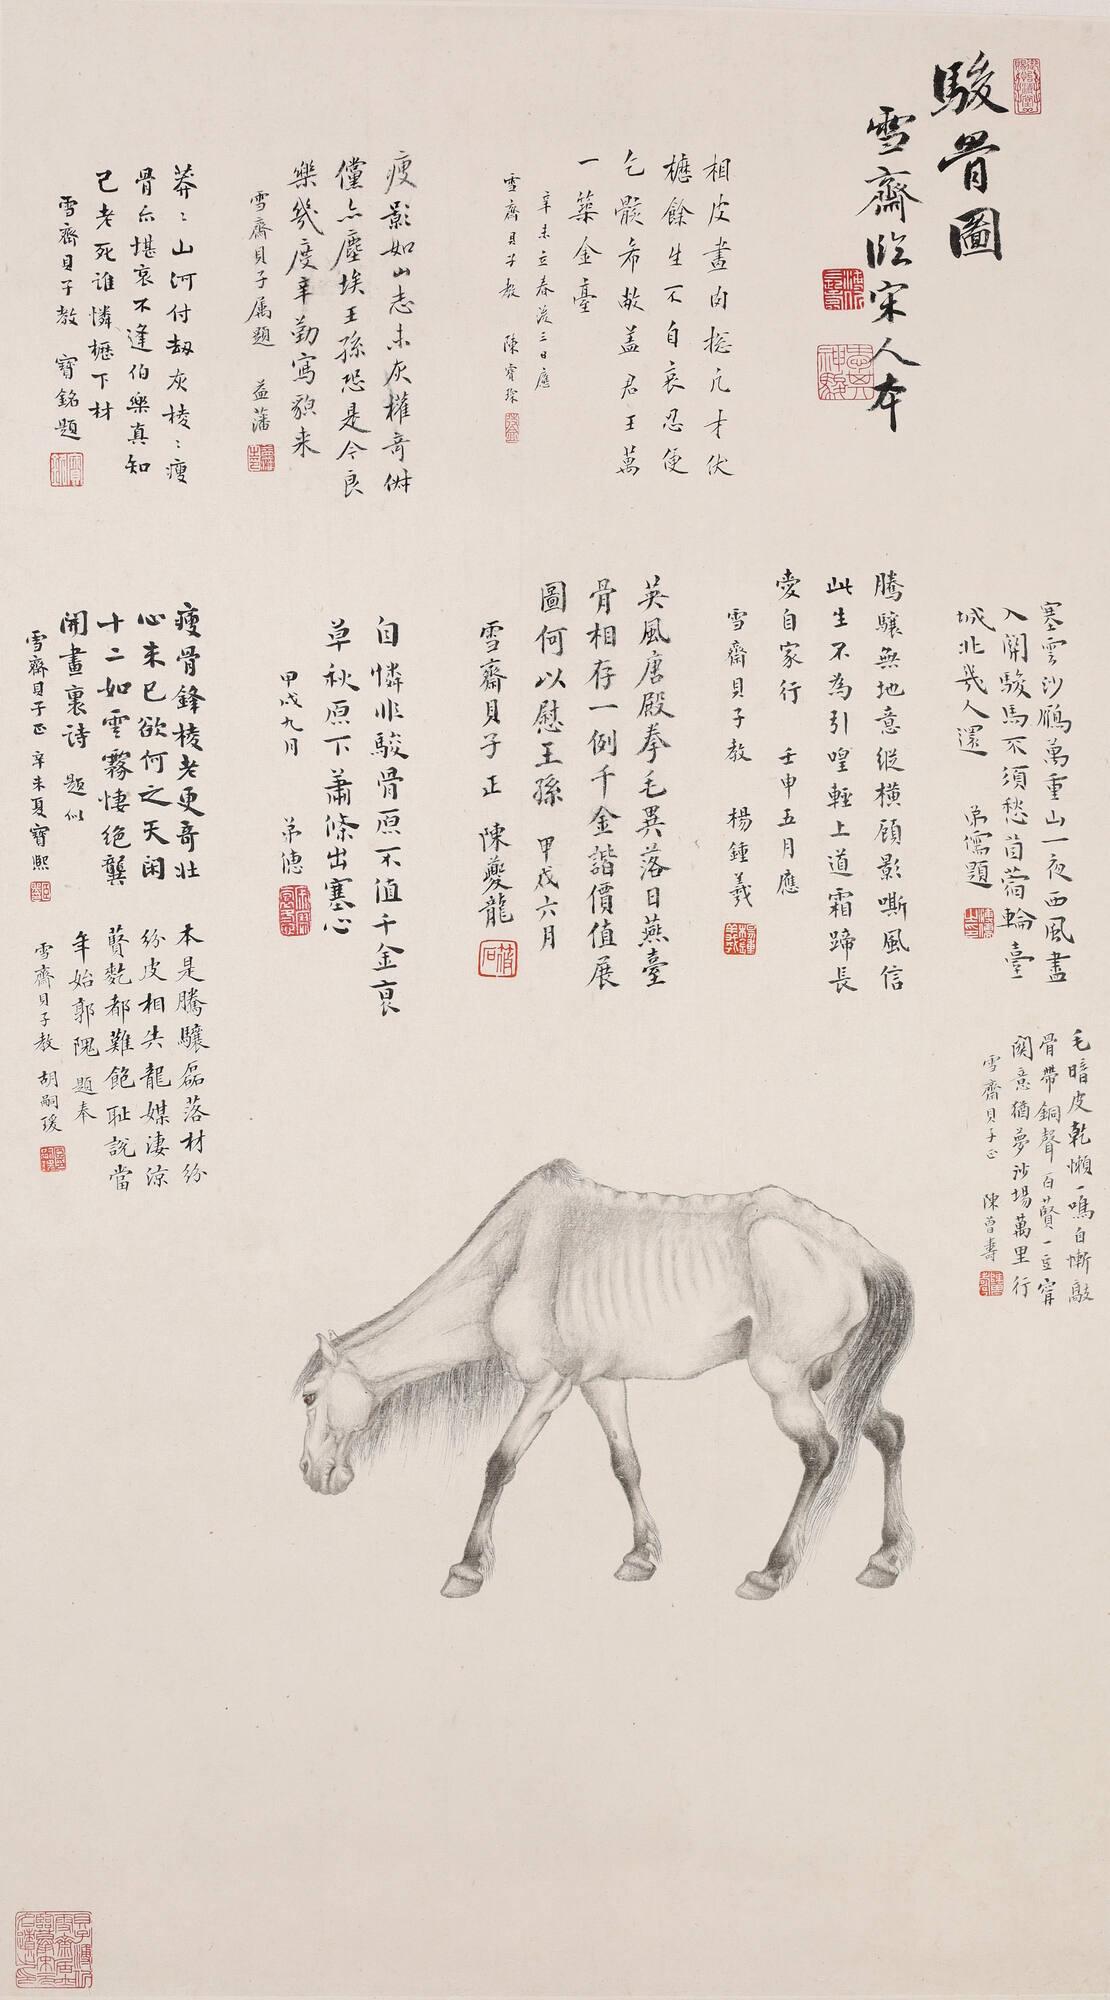 駿骨圖
雪齋臨宋人本
相皮畫肉總凡才伏
櫪餘生不自哀忍便
乞骸希敝蓋君王萬
一築金臺
辛未立春後三日應
雪齋貝子教 陳曾琮
瘦影如山志未灰權奇倜
儻亦塵埃王孫恐是今良
樂幾度辛勤寫貌來
雪齋貝子属題 益藩
莽〻山河付劫灰棱〻瘦
骨亦堪哀不逢伯樂真知
己老死誰憐櫪下材
雪齋貝子教 寶銘題
寒雲沙鴈萬重山一夜西風盡
入關駿馬不須愁苜蓿輪臺
城北幾人還 弟儒題
騰驤無地意縱橫顧影嘶風信
此生不為引喤輕上道霜蹄長
愛自家行 壬申五月應
雪齋貝子教 楊鍾羲
英風唐殿拳毛異落日燕臺
骨相存一例千金諧價值展
圖何以慰王孫 甲戌六月
雪齋貝子正 陳夔龍
自憐非駿骨原不值千金衰
草秋原下蕭條出塞心
甲戌九月 弟僡
瘦骨鋒棱老更奇壯
心未已欲何之天閑
十二如雲霧悽絕龔
開畫裏詩 題似
雪齋貝子正 辛未夏寶熙
本是騰驤磊落材紛
紛皮相失龍媒淒涼
賸麧都難飽恥說當
年始郭隗 題奉
雪齋貝子教 胡嗣瑗
毛暗皮乾懶一鳴自慚敲
骨帶銅聲百賢一豆寧
関意猶夢沙場萬里行
雪齋貝子正 陳曾壽